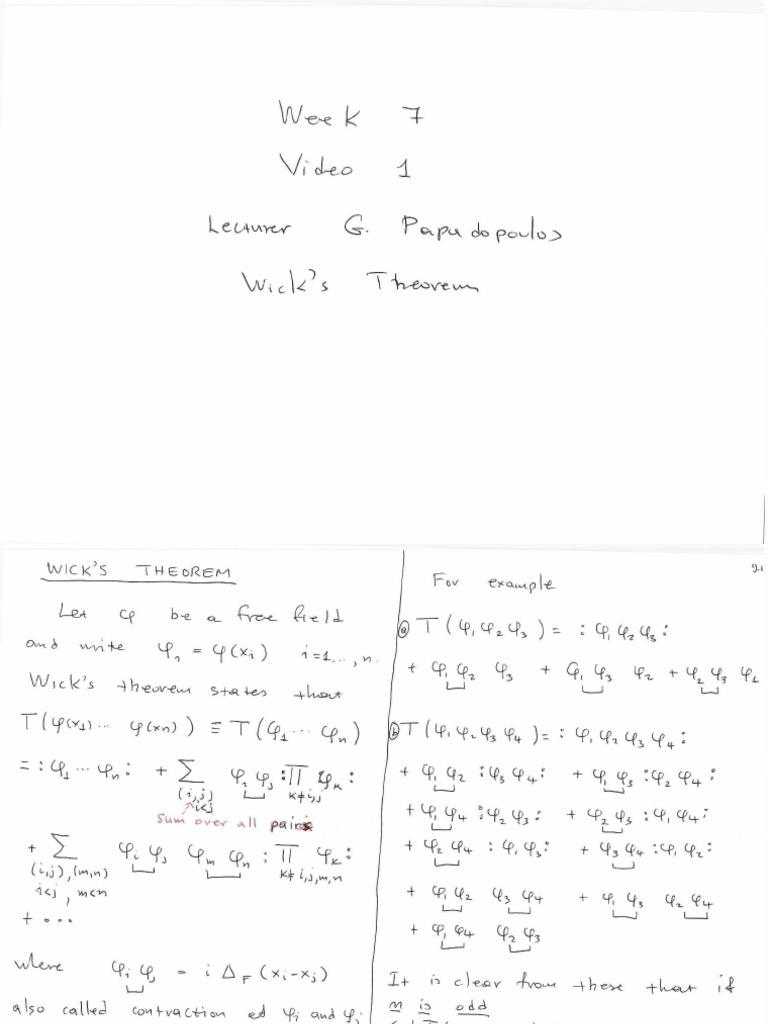 Week 7
Video 1
Lecturer G. Papadopoulos
Wick's Theorem
WICK'S THEOREM
Let φ be a free field
and write φᵢ = φ(xᵢ) i=1..., n.
Wick's theorem states that
T(φ(x₁)... φ(xₙ)) ≡ T(φ₁... φₙ)
= :φ₁ ... φₙ: + ∑ φᵢ φⱼ :∏ φₖ:
(i,j) k≠i,j
i<j
sum over all pairs
+ ∑ φᵢ φⱼ φₘ φₙ : ∏ φₖ:
(i,j),(m,n) k≠i,j,m,n
i<j, m<n
+ ...
where φᵢ φⱼ = i Δ_F (xᵢ-xⱼ)
also called contraction of φᵢ and φⱼ
9.1
For example
ⓐ T(φ₁φ₂φ₃) = :φ₁φ₂φ₃:
+ φ₁φ₂ φ₃ + φ₁φ₃ φ₂ + φ₂φ₃ φ₁
ⓑ T(φ₁φ₂φ₃φ₄) = :φ₁φ₂φ₃φ₄:
+ φ₁φ₂ :φ₃φ₄: + φ₁φ₃ :φ₂φ₄:
+ φ₁φ₄ :φ₂φ₃: + φ₂φ₃ :φ₁φ₄:
+ φ₂φ₄ :φ₁φ₃: + φ₃φ₄ :φ₁φ₂:
+ φ₁φ₂ φ₃φ₄ + φ₁φ₃ φ₂φ₄
+ φ₁φ₄ φ₂φ₃
It is clear from these that if
n is odd